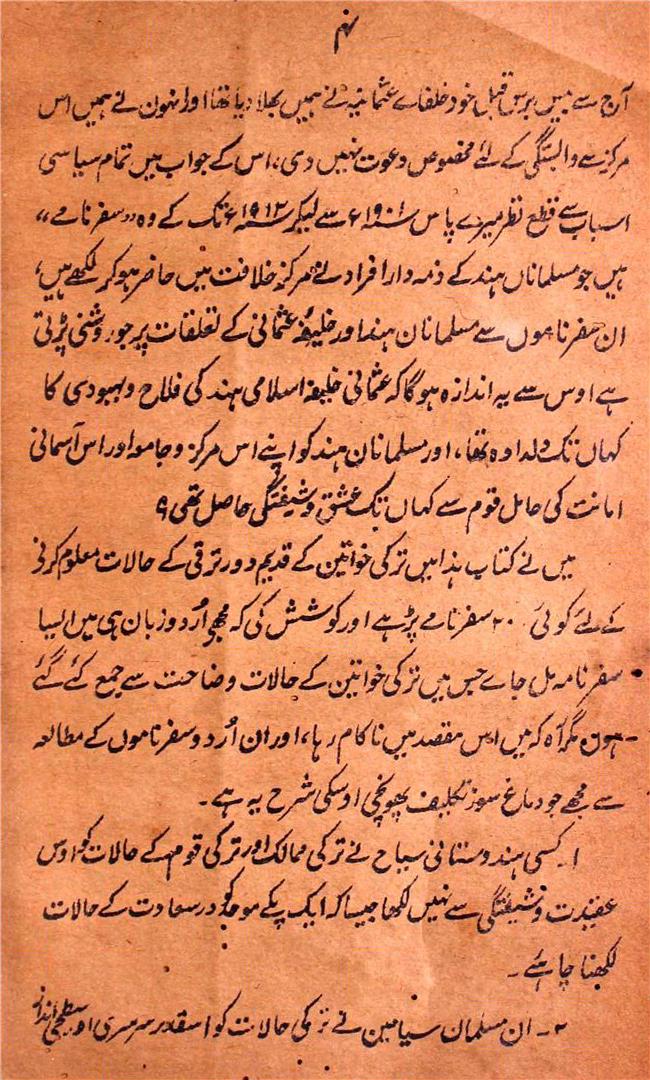 ۴
آج سے بیس برس قبل خود خلفائے عثمانیہ نے ہمیں بھلا دیا تھا اور انہون نے ہمیں اس
مرکز سے وابستگی کے لئے مخصوص دعوت نہیں دی، اس کے جواب میں تمام سیاسی
اسباب سے قطع نظر میرے پاس سنہ ۱۹۰۱ء سے لیکر سنہ ۱۹۱۲ء تک کے وہ "سفرنامے"
ہیں جو مسلمانان ہند کے ذمہ دار افراد نے مرکز خلافت میں حاضر ہو کر لکھے ہیں،
ان سفرناموں سے مسلمانان ہند اور خلیفۂ عثمانی کے تعلقات پر جو روشنی پڑتی
ہے اوس سے یہ اندازہ ہوگا کہ عثمانی خلیفہ اسلامی ہند کی فلاح و بہبودی کا
کہاں تک دلدادہ تھا، اور مسلمانان ہند کو اپنے اس مرکز و جامعہ اور اس آسمانی
امانت کی حامل قوم سے کہاں تک عشق و شیفتگی حاصل تھی؟
میں نے کتاب ہذا میں ترکی خواتین کے قدیم دور ترقی کے حالات معلوم کرنی
کے لئے کوئی ۲۰ سفرنامے پڑہے اور کوشش کی کہ مجھے اُردو زبان ہی میں ایسا
سفرنامہ مل جاے جس میں ترکی خواتین کے حالات وضاحت سے جمع کئے گئے
ہون مگر آہ کہ میں اس مقصد میں ناکام رہا، اور ان اُردو سفرناموں کے مطالعہ
سے مجھے جو دماغ سوز تکلیف پہونچی اوسکی شرح یہ ہے۔
۱۔ کسی ہندوستانی سیاح نے ترکی ممالک اور ترکی قوم کے حالات کو اوس
عقیدت و شیفتگی سے نہیں لکھا جیسا کہ ایک پکے موحد کو در سعادت کے حالات
لکھنا چاہئے۔
۲۔ ان مسلمان سیاحین نے ترکی حالات کو اسقدر سرسری اور سطحی انداز